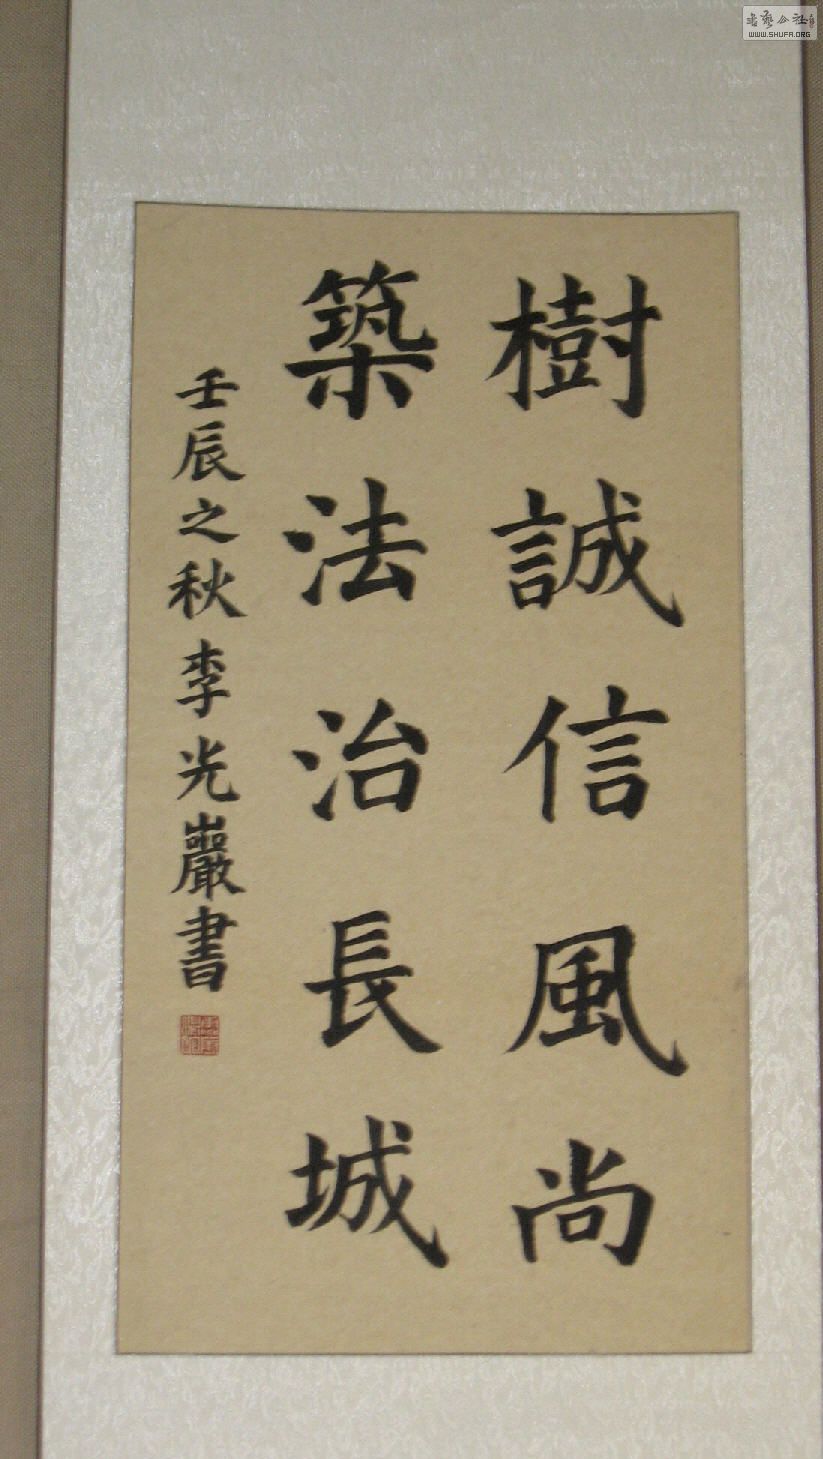 樹誠信風尚
築法治長城
壬辰之秋李光巖書
書藝公社
WWW.SHUFA.ORG